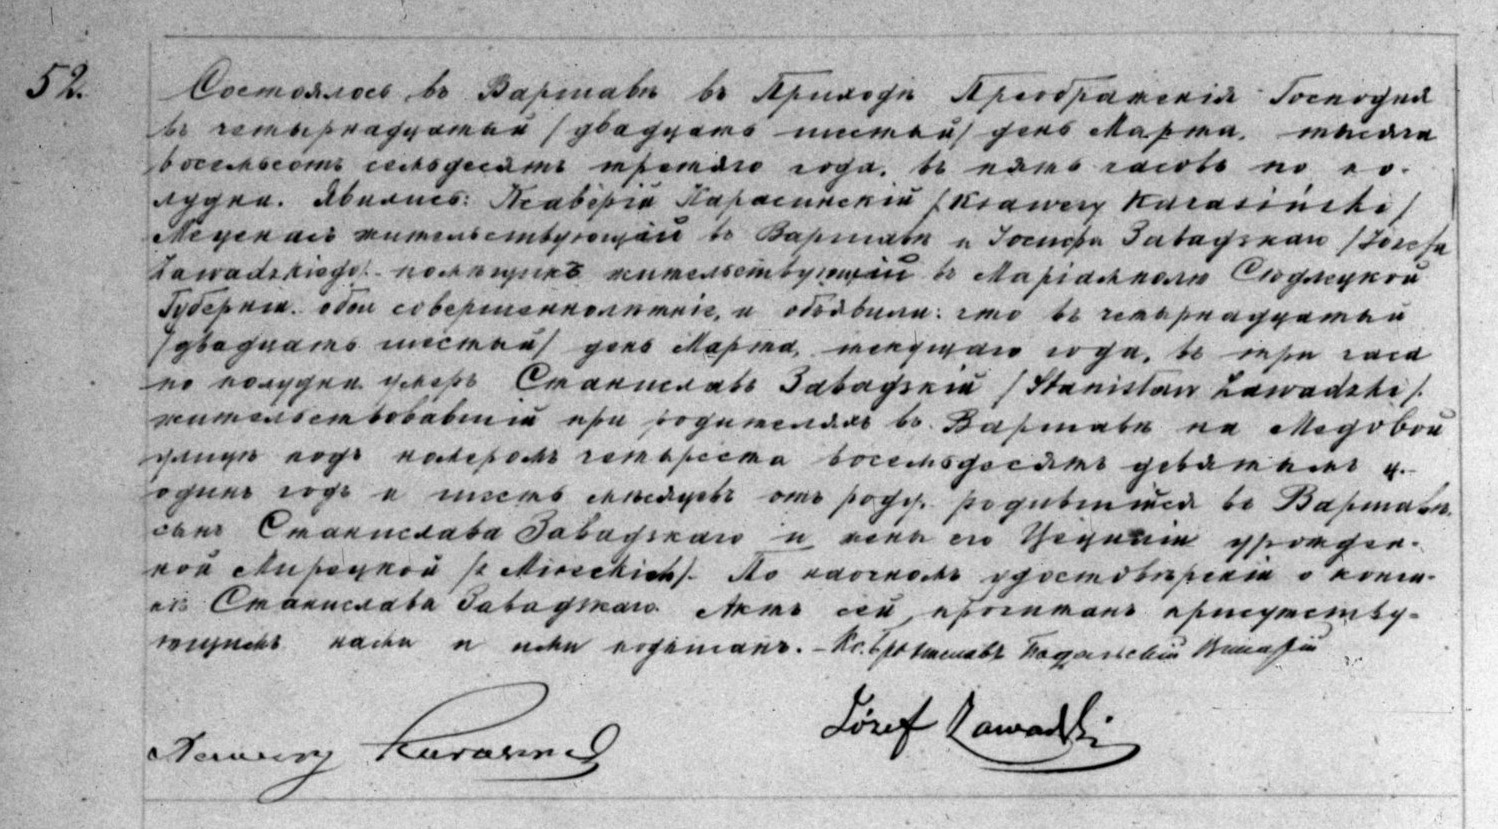 52.
Состоялось въ Варшавѣ въ Приходѣ Преображенія Господня
въ четырнадцатый /двадцать шестый/ день Марта, тысяча
восемьсотъ семьдесятъ третяго года, въ пять часовъ по по-
лудни. Явились: Ксаверій Карасинскій /Ksawery Karasiński/
Меценасъ жительствующій въ Варшавѣ и Іосифъ Завадзкаго /Józefa
Zawadzkiego/ - помѣщикъ жительствующій въ Маріамполю Сѣдлецкой
Губерніи. обои совершеннолѣтніе, и объявили: что въ четырнадцатый
/двадцать шестый/ день Марта, текущаго года, въ три часа
по полудни умеръ Станиславъ Завадзкій /Stanisław Zawadzki/.
жительствовавшій при родителяхъ въ Варшавѣ на Медовой
улицѣ подъ номеромъ четыреста восемьдесятъ девятымъ
одинъ годъ и шесть мѣсяцевъ отъ роду. родившійся въ Варшавѣ,
сынъ Станислава Завадзкаго и жены его Цециліи урожден-
ной Мирецкой /z Mireckich/. По наочномъ удостовѣреніи о кончи-
нѣ Станислава Завадзкаго Актъ сей прочитанъ присутству-
ющимъ нами и ими подписанъ. - Кс. Брониславъ Викарій
Ksawery Karasiński
Józef Zawadzki